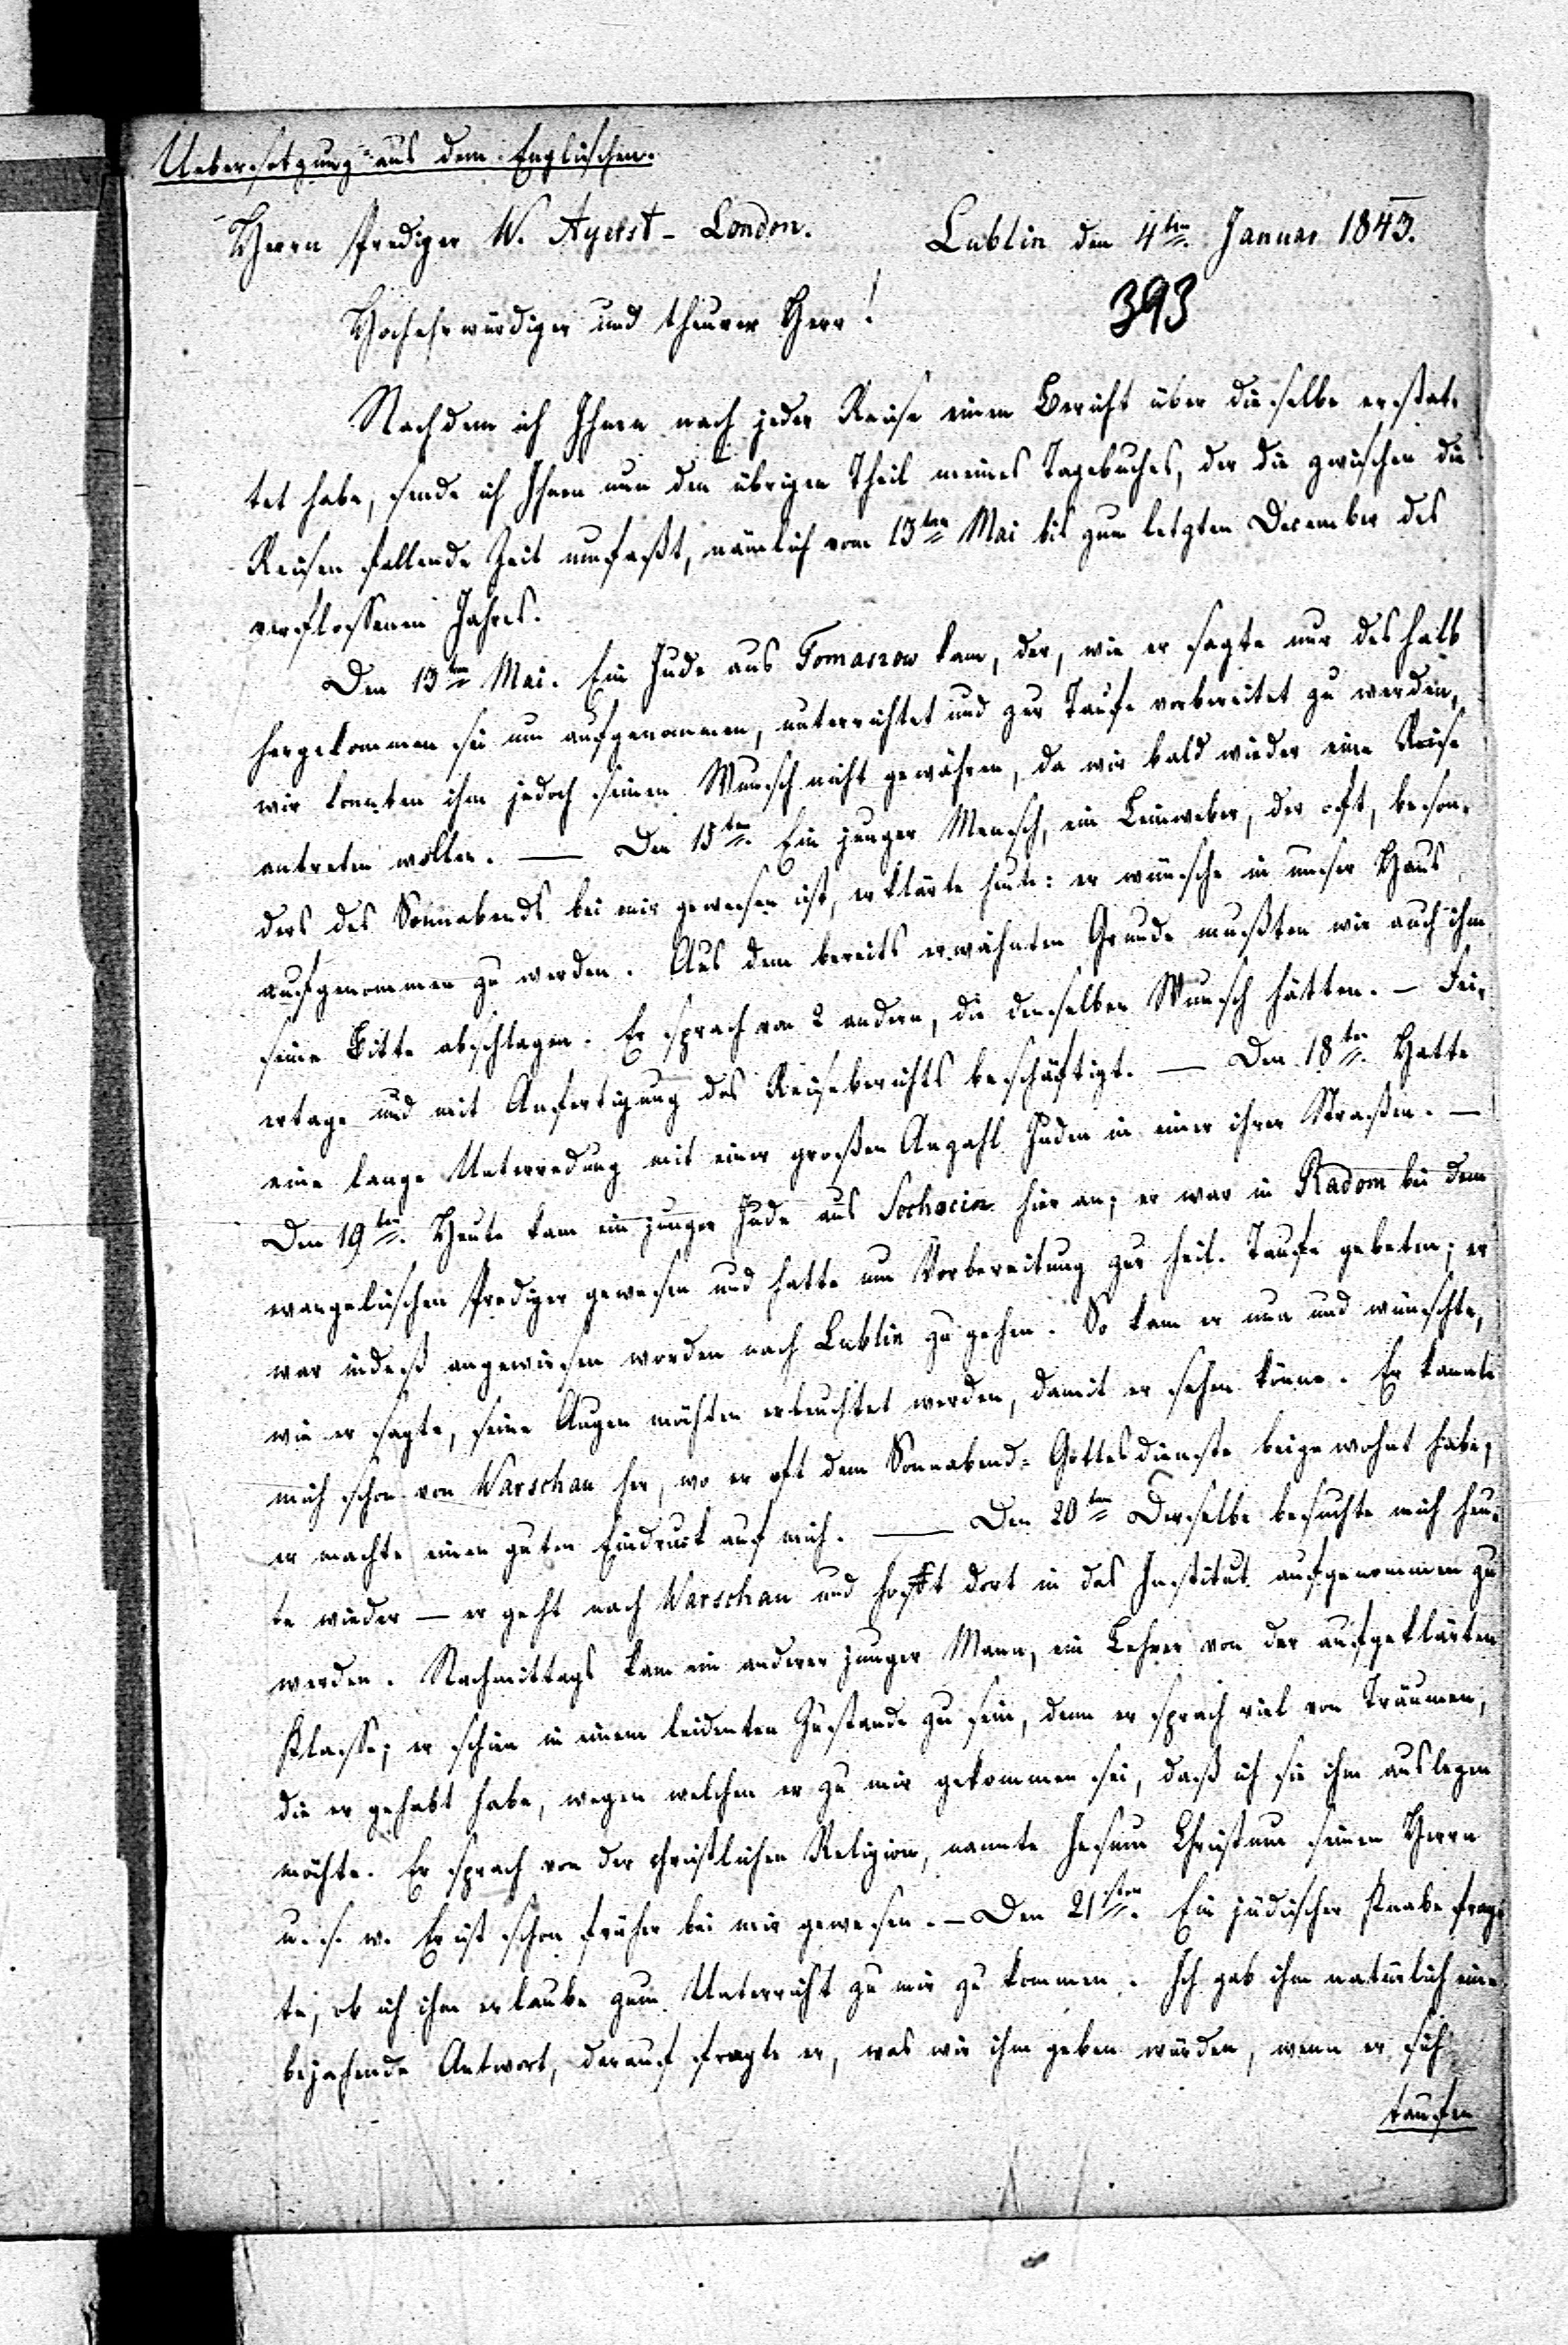 Uebersetzung aus dem Englischen.
Herrn Prediger W. Ayerst - London. Lublin den 4ten Januar 1843.
393
Hochehrwürdiger und theurer Herr!
Nachdem ich Ihnen nach jeder Reise einen Bericht über dieselbe erstat-
tet habe, sende ich Ihnen nun den übrigen Theil meines Tagebuches, der die zwischen die
Reisen fallende Zeit umfaßt, nämlich vom 13ten Mai bis zum letzten December des
verflossenen Jahres.
Den 13ten Mai. Ein Jude aus Tomaszow kam, der, wie er sagte nur deshalb
hergekommen sei um aufgenommen, unterrichtet und zur Taufe vorbereitet zu werden,
wir konnten ihm jedoch seinen Wunsch nicht gewähren, da wir bald wieder eine Reise
antreten wollten. — Den 15ten. Ein junger Mensch, ein Leinweber, der oft, beson-
ders des Sonnabends bei mir gewesen ist, erklärte heute: er wünsche in unser Haus
aufgenommen zu werden. Aus dem bereits erwähnten Grunde mußten wir auch ihm
seine Bitte abschlagen. Er sprach von 2 andern, die denselben Wunsch hätten. — Fei-
ertage und mit Anfertigung des Reiseberichts beschäftigt. — Den 18ten. Hatte
eine lange Unterredung mit einer großen Anzahl Juden in einer ihrer Straßen. —
Den 19ten. Heute kam ein junger Jude aus Sochocin hier an; er war in Radom bei dem
evangelischen Prediger gewesen und hatte um Vorbereitung zur heil. Taufe gebeten; er
war indeß angewiesen worden nach Lublin zu gehen. So kam er nun und wünschte,
wie er sagte, seine Augen möchten erleuchtet werden, damit er sehen könne. Er kannte
mich schon von Warschau her, wo er oft dem Sonnabend-Gottesdienste beigewohnt habe;
er machte einen guten Eindruck auf mich. — Den 20ten Derselbe besuchte mich heu-
te wieder — er geht nach Warschau und hofft dort in das Institut aufgenommen zu
werden. Nachmittags kam ein anderer junger Mann, ein Lehrer von der aufgeklärten
Klasse; er schien in einem leidenten Zustande zu sein, denn er sprach viel von Träumen,
die er gehabt habe, wegen welchen er zu mir gekommen sei, daß ich sie ihm auslegen
möchte. Er sprach von der christlichen Religion, nannte Jesum Christum seinen Herrn
u. s. w. Er ist schon früher bei mir gewesen. — Den 21sten. Ein jüdischer Knabe frag-
te, ob ich ihm erlaube zum Unterricht zu mir zu kommen. Ich gab ihm natürlich eine
bejahende Antwort, darauf fragte er, was wir ihm geben würden, wenn er sich
taufen